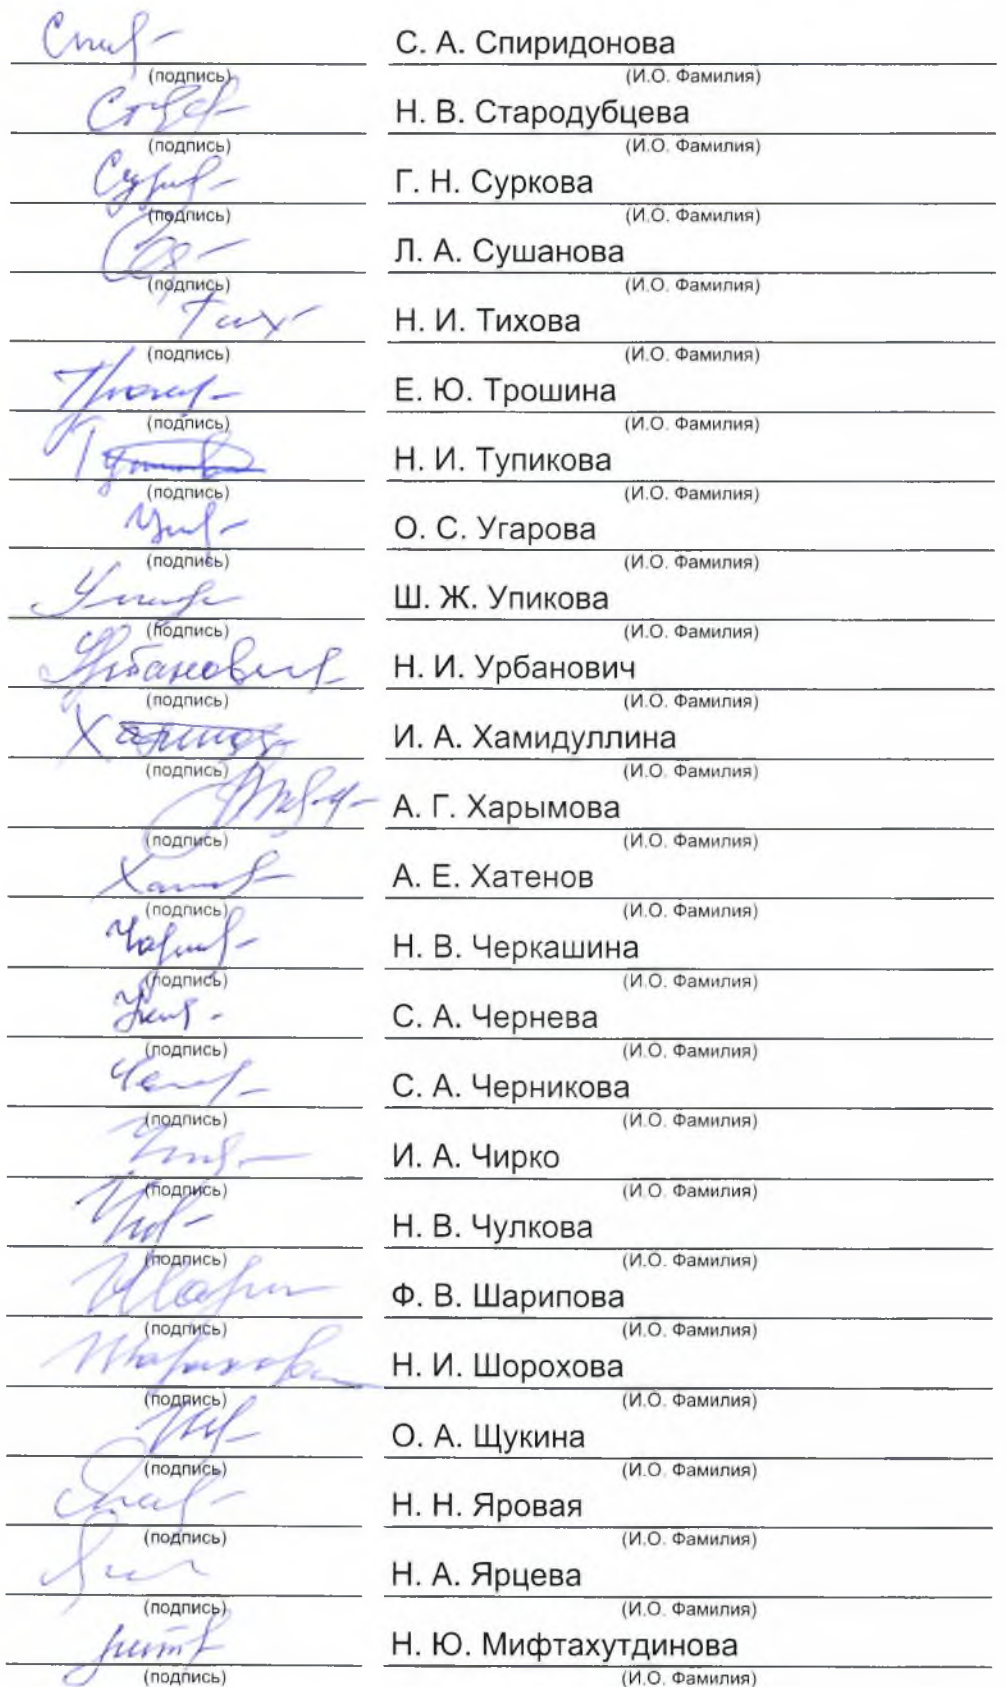 С. А. Спиридонова
(подпись) (И.О. Фамилия)
Н. В. Стародубцева
(подпись) (И.О. Фамилия)
Г. Н. Суркова
(подпись) (И.О. Фамилия)
Л. А. Сушанова
(подпись) (И.О. Фамилия)
Н. И. Тихова
(подпись) (И.О. Фамилия)
Е. Ю. Трошина
(подпись) (И.О. Фамилия)
Н. И. Тупикова
(подпись) (И.О. Фамилия)
О. С. Угарова
(подпись) (И.О. Фамилия)
Ш. Ж. Упикова
(подпись) (И.О. Фамилия)
Н. И. Урбанович
(подпись) (И.О. Фамилия)
И. А. Хамидуллина
(подпись) (И.О. Фамилия)
А. Г. Харымова
(подпись) (И.О. Фамилия)
А. Е. Хатенов
(подпись) (И.О. Фамилия)
Н. В. Черкашина
(подпись) (И.О. Фамилия)
С. А. Чернева
(подпись) (И.О. Фамилия)
С. А. Черникова
(подпись) (И.О. Фамилия)
И. А. Чирко
(подпись) (И.О. Фамилия)
Н. В. Чулкова
(подпись) (И.О. Фамилия)
Ф. В. Шарипова
(подпись) (И.О. Фамилия)
Н. И. Шорохова
(подпись) (И.О. Фамилия)
О. А. Щукина
(подпись) (И.О. Фамилия)
Н. Н. Яровая
(подпись) (И.О. Фамилия)
Н. А. Ярцева
(подпись) (И.О. Фамилия)
Н. Ю. Мифтахутдинова
(подпись) (И.О. Фамилия)